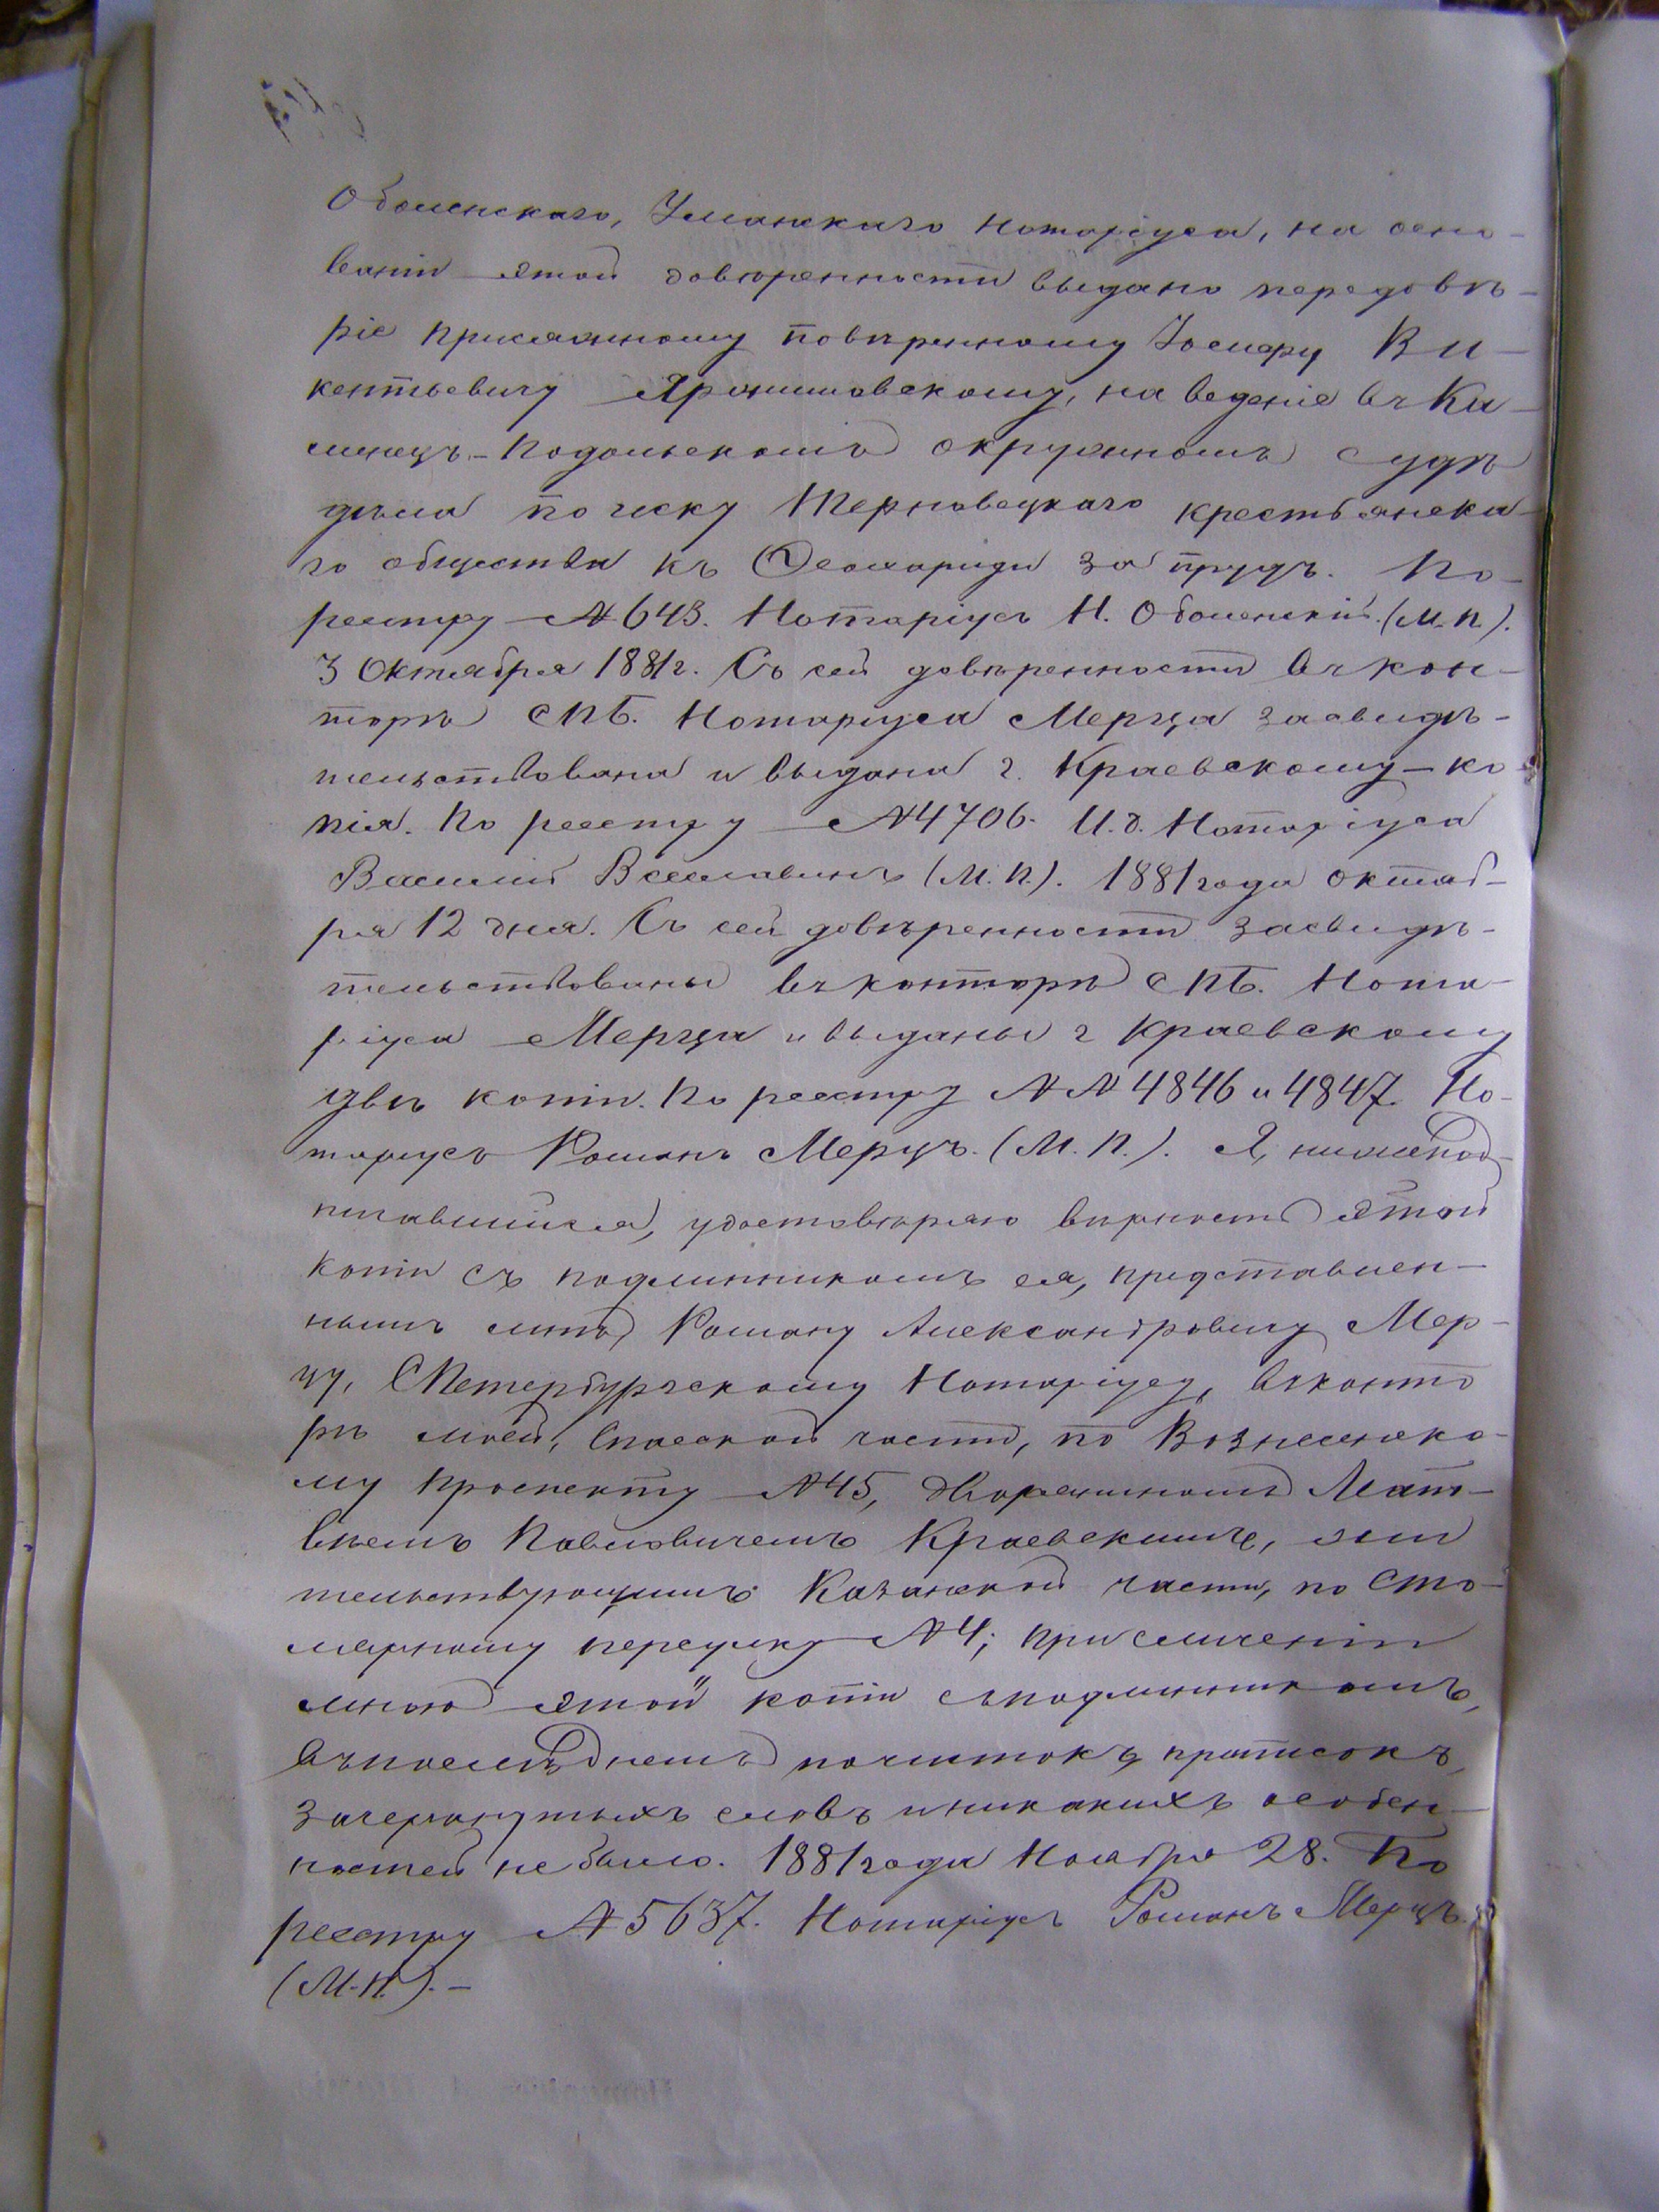 Оболенскаго, Уманскаго Нотаріуса, на осно-
ваніи этой довѣренности выдано передовѣ-
ріе присяжному повѣренному Іосифу Ви-
кентьевичу Ярошинскому, на веденіе въ Ка-
менецъ-Подольскомъ окружномъ судѣ
дѣла по иску Терновецкаго крестьянска-
го общества къ Феохариди за прудъ. По
реестру № 643. Нотаріусъ Н. Оболенскій. (М.П.).
3 Октября 1881 г. Съ сей довѣренности въ кон-
торѣ СПБ. Нотаріуса Мерца засвидѣ-
тельствована и выдана г. Краевскому – ко-
пія. По реестру № 4706. И.д. Нотаріуса
Василій Всеславинъ (М.П.). 1881 года октяб-
ря 12 дня. Съ сей довѣренности засвидѣ-
тельствованы въ конторѣ СПБ. Нота-
ріуса Мерца и выданы г Краевскому
двѣ копіи. По реестру №№ 4846 и 4847. Но-
таріусъ Романъ Мерцъ. (М.П.). Я, нижепод-
писавшійся, удостовѣряю вѣрность этой
копіи съ подлинникомъ ея, представлен-
нымъ мнѣ, Роману Александровичу Мер-
цу, СПетербургскому Нотаріусу, въ конто
рѣ моей, Спасской части, по Вознесенско-
му проспекту № 45, дворяниномъ Мат-
вѣемъ Павловичемъ Краевскимъ, жи
тельствующимъ Казанской части, по Сто-
лярному переулку № 4; при сличеніи
мною этой копіи съ подлинникомъ,
въ послѣднемъ почистокъ, приписокъ,
зачеркнутыхъ словъ и никакихъ особен-
ностей не было. 1881 года Ноября 28. По
реестру № 5637. Нотаріусъ Романъ Мерцъ.
(М.П.). –